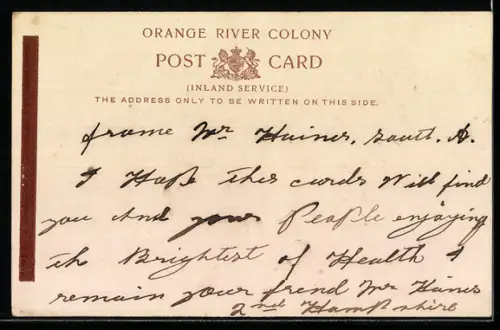 ORANGE RIVER COLONY
POST CARD
(INLAND SERVICE)
THE ADDRESS ONLY TO BE WRITTEN ON THIS SIDE.
frome Mr Haines, South. A.
I Hope this cards Will find
you And your People enjoying
th Brightest of Health I
remain your frend Mr Haines
2nd Hampshire